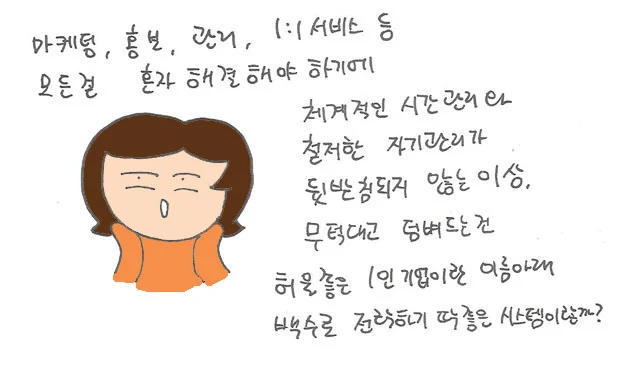 마케팅, 홍보, 관리, 1:1 서비스 등
모든걸 혼자 해결해야 하기에
체계적인 시간관리와
철저한 자기관리가
뒷받침되지 않는이상,
무턱대고 덤벼드는건
허울좋은 1인기업이란 이름아래
백수로 전락하기 딱좋은 시스템이랄까?